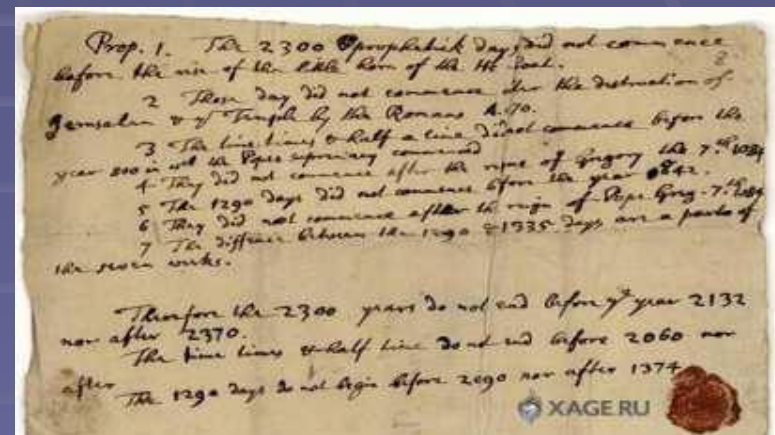 Prop. 1. The 2300 prophetick days did not commence
before the rise of the little horn of the He Goat.
8
2 Those day did not commence after the destruction of
Jerusalem & ye Temple by the Romans A. 70.
3 The time times & half a time did not commence before the
year 800 in wch the Popes supremacy commenced
4 They did not commence after the reigne of Gregory the 7th. 1084
5 The 1290 days did not commence before the year 842.
6 They did not commence after the reign of Pope Greg. 7th. 1084
7 The diffence between the 1290 & 1335 days are a parts of
the seven weeks.
Therefore the 2300 years do not end before ye year 2132
nor after 2370.
The time times & half time do not end before 2060 nor
after
The 1290 days do not begin before 2090 nor after 1374
XAGE.RU